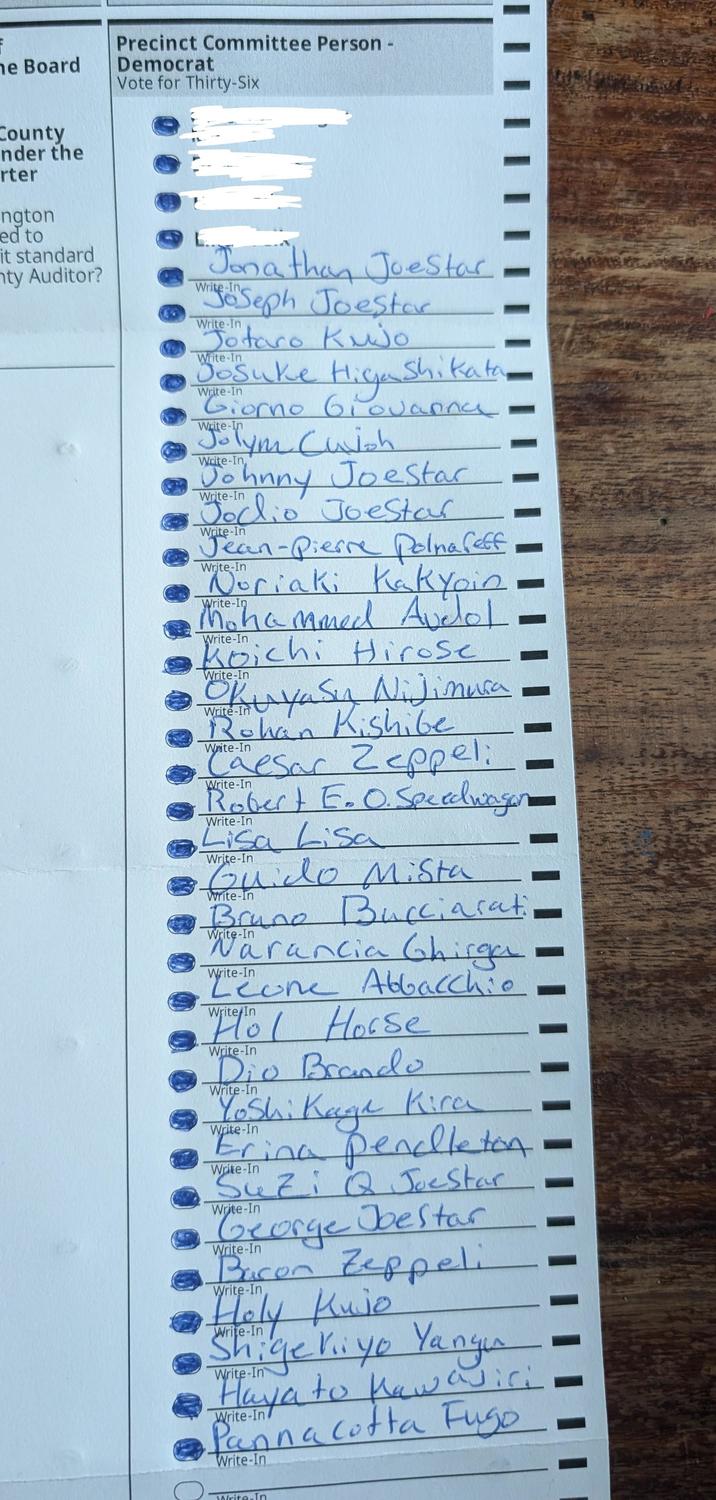 f
he Board
County
nder the
rter
ngton
ed to
it standard
nty Auditor?
Precinct Committee Person -
Democrat
Vote for Thirty-Six
Jonathan JoeStar
Write-In
Joseph Joestar
Write-In
Jotaro Kujo
Write-In
Josuke Higashikata
Write-In
Giorno Giovanna
Write-In
Jolyne Cujoh
Write-In
Johnny Joestar
Write-In
Jodio Joestar
Write-In
Jean-Pierre Polnareff
Write-In
Noriaki Kakyoin
Write-In
Mohammed Avdol
Write-In
Koichi Hirose
Write-In
Okuyasu Nijimura
Write-In
Rohan Kishibe
Write-In
Caesar Zeppeli
Write-In
Robert E.O. Speedwagon
Write-In
Lisa Lisa
Write-In
Guido Mista
Write-In
Bruno Bucciarati
Write-In
Narancia Ghirga
Write-In
Leone Abbacchio
Write-In
Hol Horse
Write-In
Dio Brando
Write-In
Yoshikage Kira
Write-In
Erina Pendleton
Write-In
Suzi Q Joestar
Write-In
George Joestar
Write-In
Baron Zeppeli
Write-In
Holy Kujo
Write-In
Shigekiyo Yangu
Write-In
Hayato Kawajiri
Write-In
Pannacotta Fugo
Write-In
Write-In